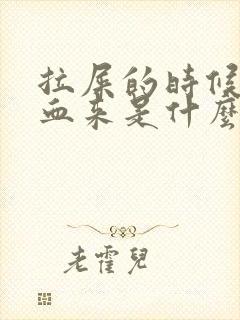 拉屎的時候
血來是什麼
老霍兒